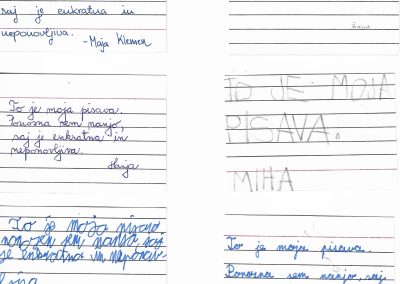 saj je enkratna in
neponovljiva.
-Maja Klemen
To je moja pisava.
Ponosna sem nanjo,
saj je enkratna in
neponovljiva.
Hanja
TO JE MOJA
PISAVA.
MIHA
To je moja pisava
ponosen sem nanjo saj
je enkratna in neponov
ljiva
To je moja pisava.
Ponosna sem nanjo, saj